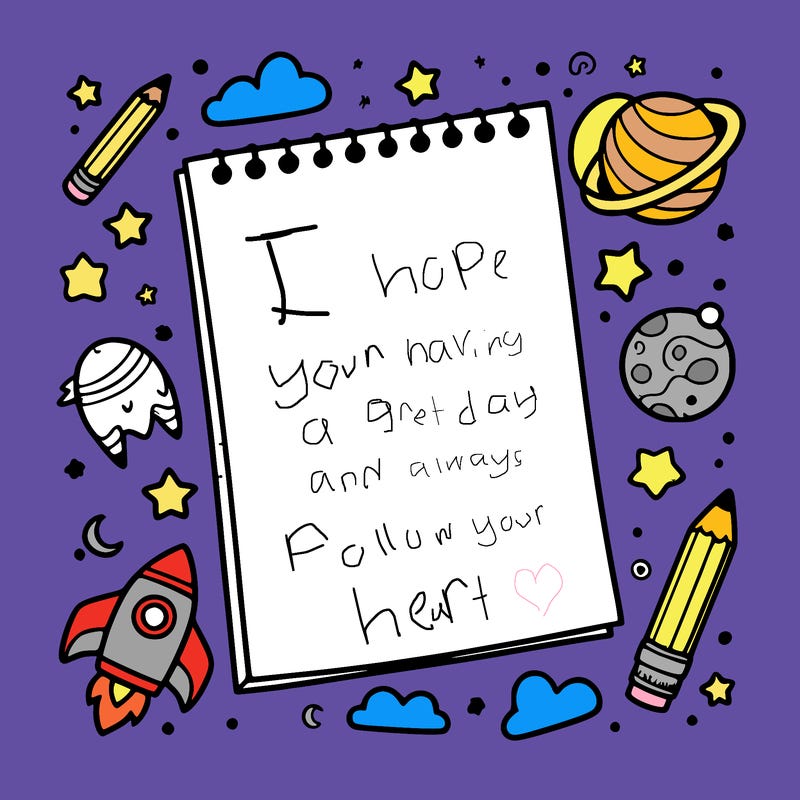 I hope
youn having
a gret day
and always
Follow your
heart